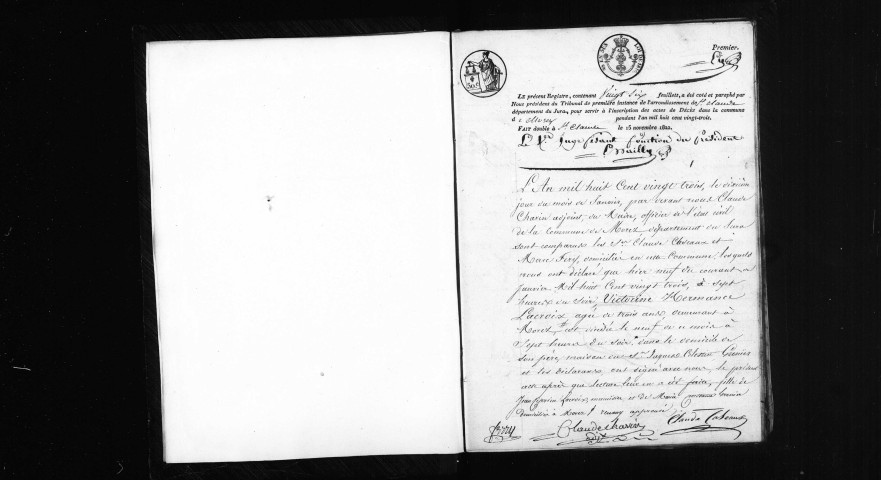 Premier.
LE présent Registre, contenant Vingt Six feuillets, a été coté et paraphé par
Nous président du Tribunal de première instance de l'arrondissement de St. Claude
département du Jura, pour servir à l'inscription des actes de Décès dans la commune
d e Morez pendant l'an mil huit cent vingt-trois.
FAIT double à St. Claude le 15 novembre 1822.
Le Juge faisant fonction de Président
L'An mil huit Cent vingt trois, le dixième
jour du mois de Janvier, par devant nous Claude
Chavin adjoint, du Maire, officier de l'état civil
de la Commune de Morez département du Jura
sont comparus les Srs. Claude Cabeaux et
Marc Ferry, domiciliés en cette Commune, lesquels
nous ont déclaré que hier neuf du courant
Janvier Mil huit Cent vingt trois, à sept
heures du soir, Victorine Hermance
Lacroix, agée de trois ans, demeurant à
Morez, est décédée le neuf de ce mois à
Sept heures du Soir dans le domicile de
son père, maison du Sr. Jacques Célestin
et les déclarans, ont signé avec nous, le présent
acte après que lecture leur en a été faite, fille de
Lacroix, et de Marie
domiciliés à Morez approuvé
Ferry Claude Chavin Claude Cabeaux
adjt